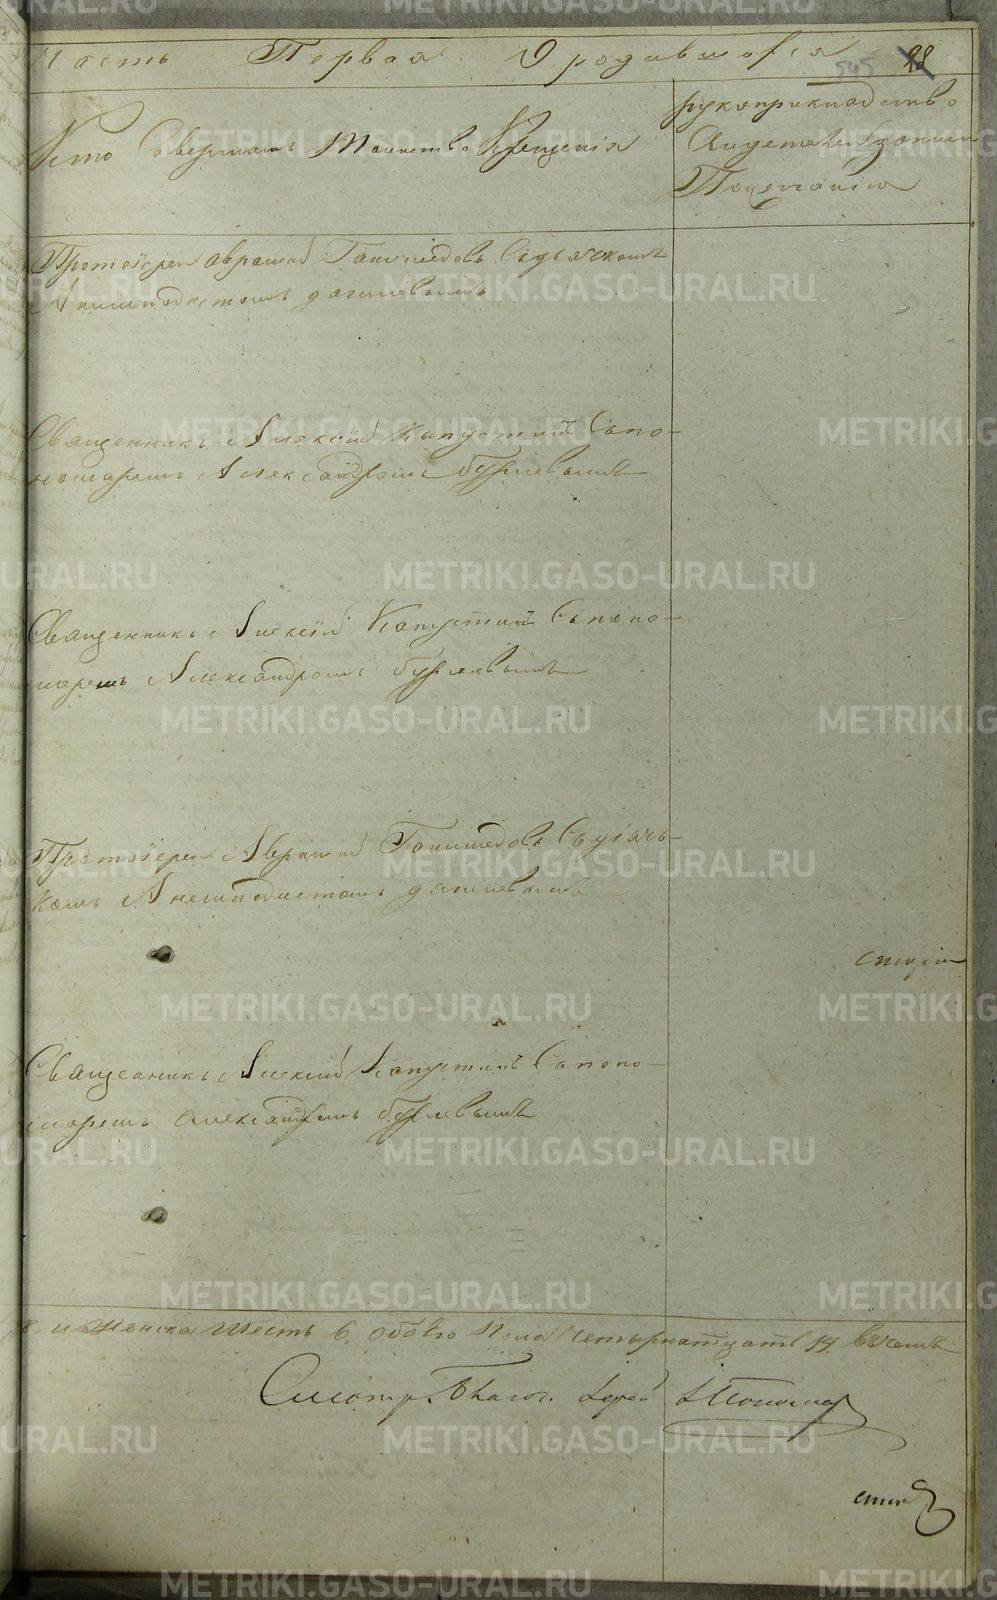 Часть Первая О родившихся
545 28
Кто Совершалъ Таинство Крещенія
рукоприкладство
Свидетелей записи
По желанію
Протоіерей Авраамій Ганимедовъ Съ дьячкомъ
Анемподистомъ
Священникъ Алексій Капустинъ Съ по-
номаремъ Александромъ
Священникъ Алексій Капустинъ Съ поно-
маремъ Александромъ
Протоіерей Авраамій Ганимедовъ Съ дьячь-
комъ Анемподистомъ
Священникъ Алексій Капустинъ Съ поно-
маремъ Александромъ
8 и женска шесть 6, обоего Пола Четырнатцать 14 въ чемъ
Смотр. Благоч. Іерей
METRIKI.GASO-URAL.RU